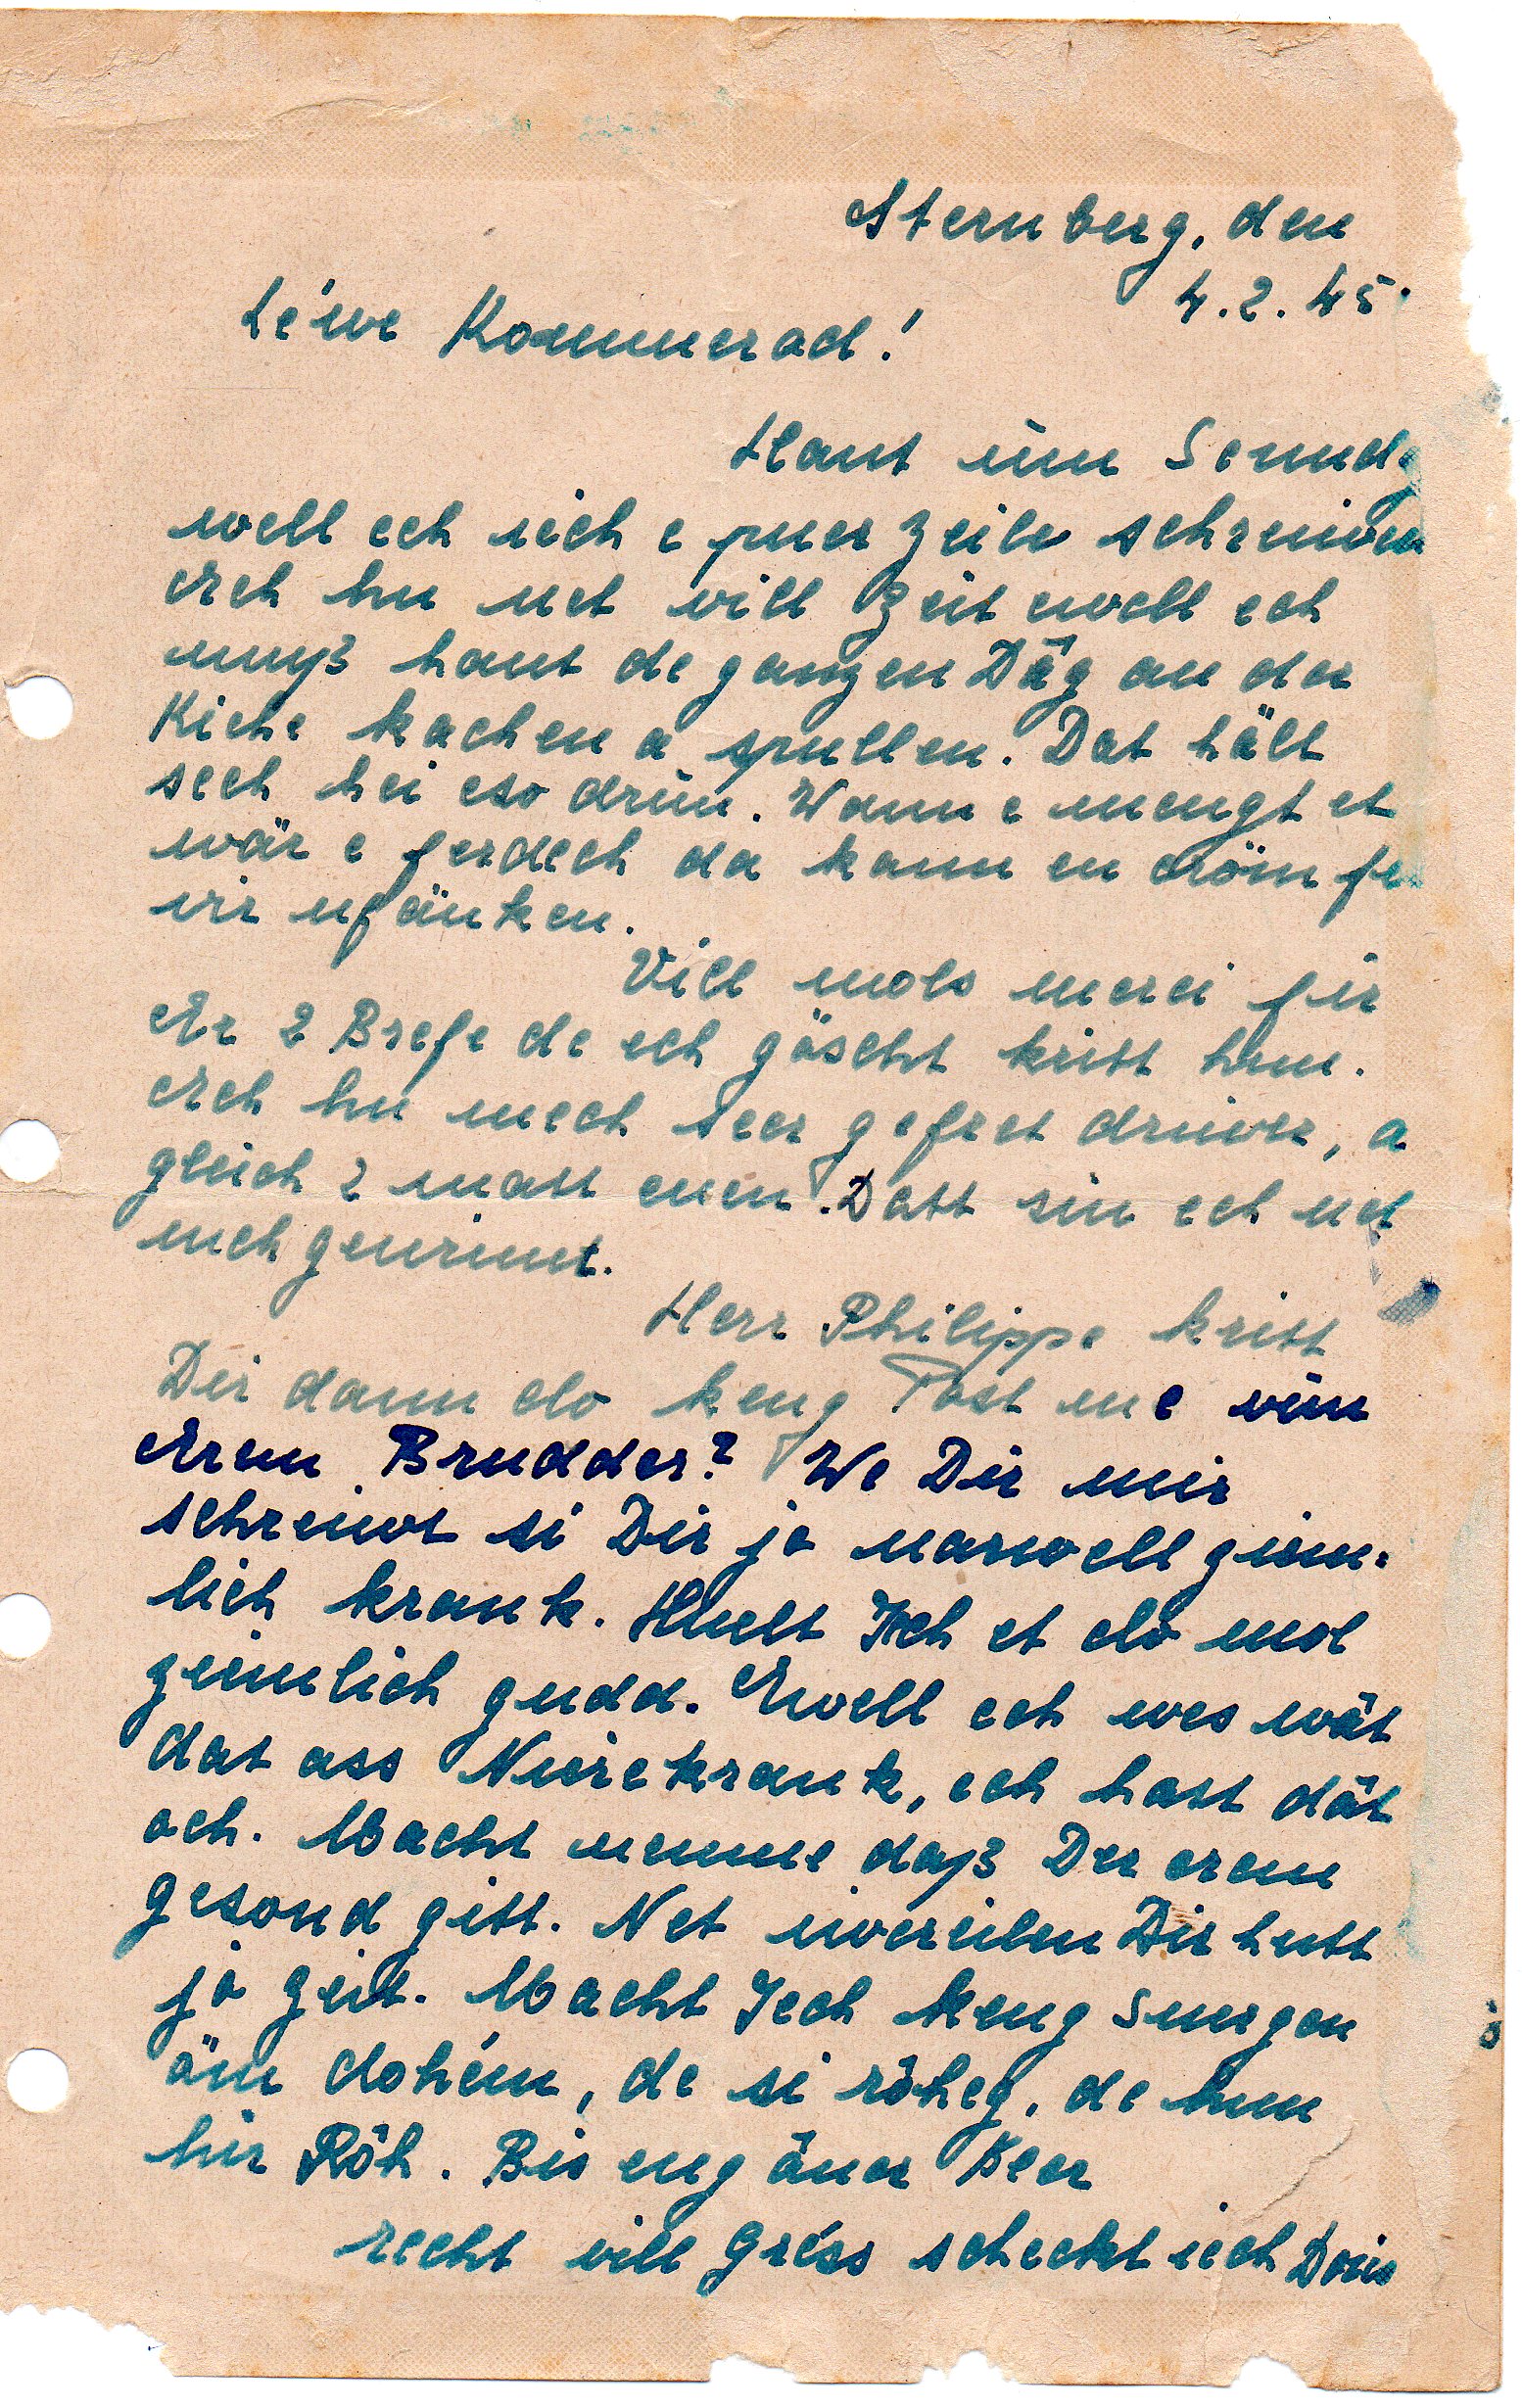 Sternberg, den
4.2.45.
Léiwe Kommerad!
Haut um Sonnd
well ech iech e puer Zeile schreiwen
Ech hu net vill Zeit well ech
muß haut de ganzen Dåg an der
Kiche kachen a spullen. Dat hält
sech hei eso drun. Wann e mengt et
wär e ferdech da kann en dröm fu
vir ufänken.
Vill mols merci fir
Är 2 Brefe de ech göscht kritt hun.
Ech hu mech seer gefret driwer, a
gleich 2 matt enen. Datt sin ech net
uch gewinnt.
Herr Philippe kritt
Dir dann do keng Post me vun
Ärem Brudder? We Dir mir
schreiwt si Dir jo narwell zimm-
lich krank. Huelt Iech et do mol
zimmlich gudd. Ewell ech wes wåt
dat ass Nierekrank, ech hatt dåt
och. Macht nemme daß Der erem
gesond gitt. Net iwereilen Dir hutt
jo Zeit. Macht Iech keng Suergen
öm dohém, de si röheg, de hun
hir Röh. Bis eng äner Keer
recht vill Gréss scheckt iech Doris